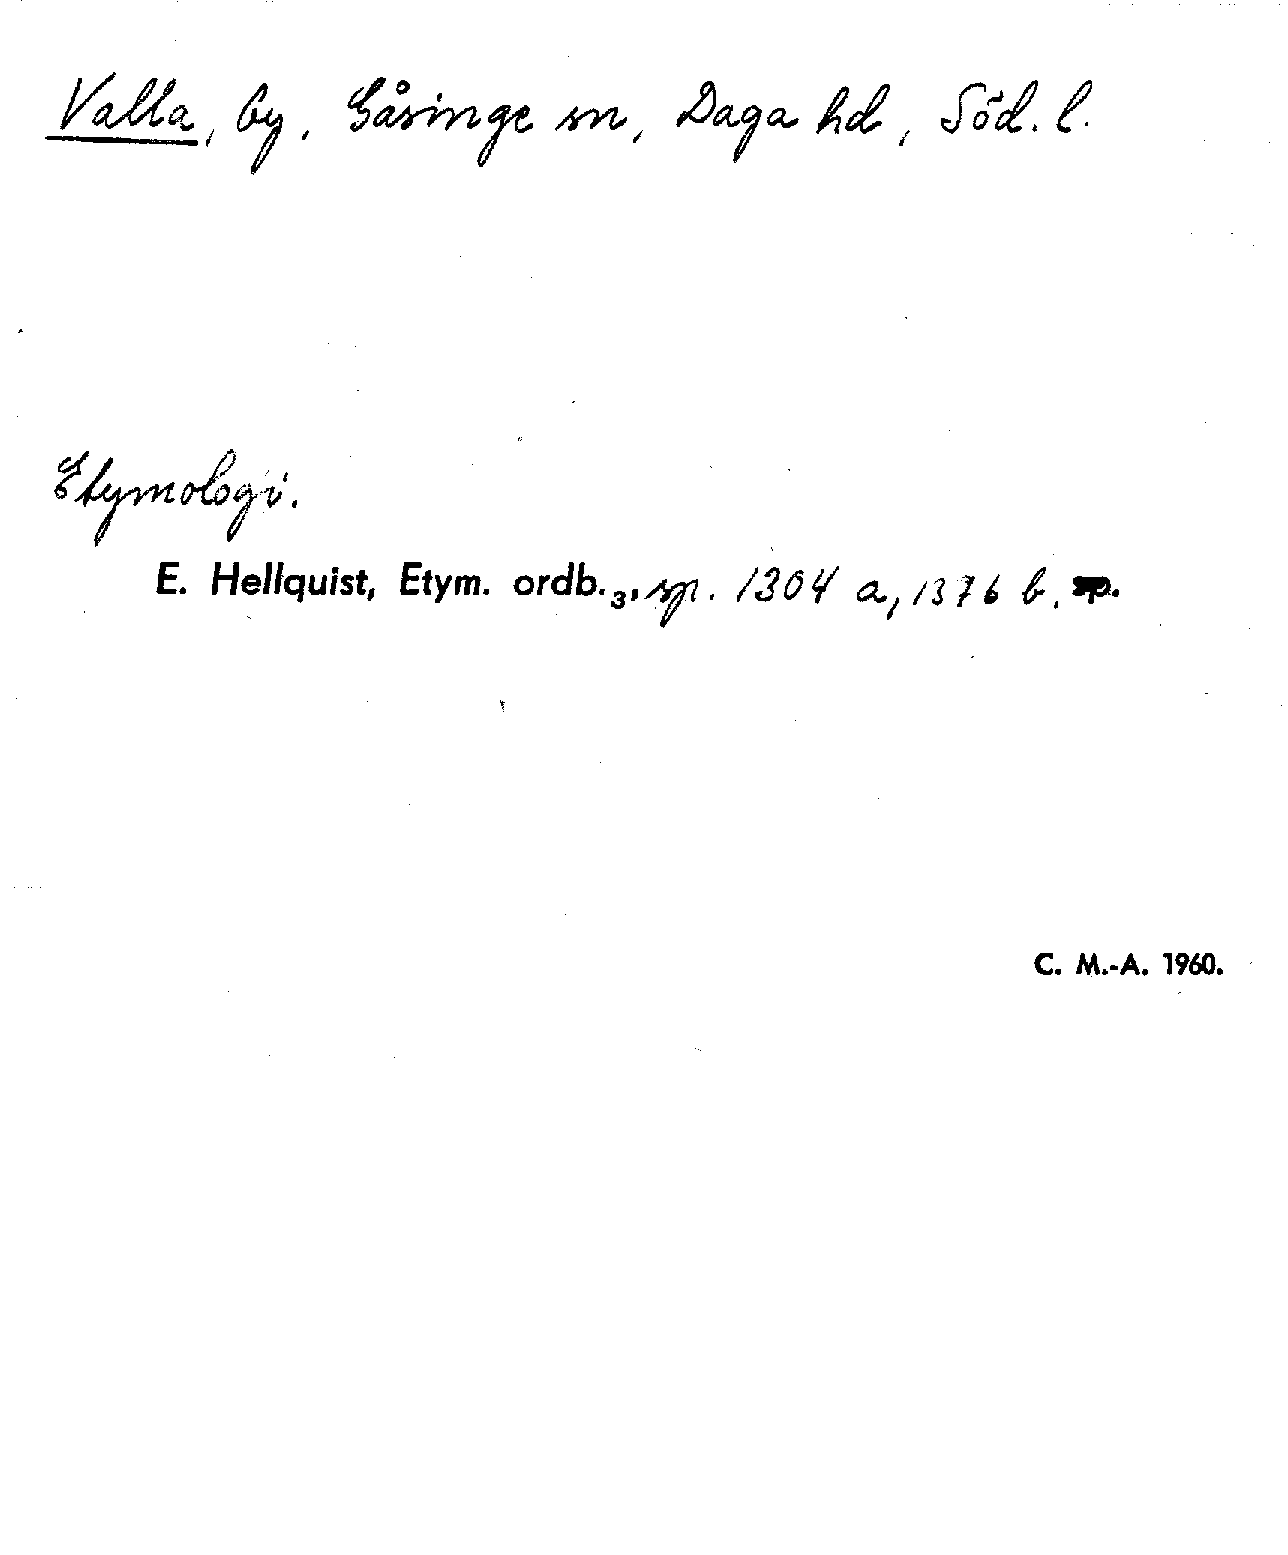 Valla, by, Gåsinge sn, Daga hd, Söd. l.
Etymologi.
E. Hellquist, Etym. ordb.₃, sp. 1304 a, 1376 b. sp.
C. M.-A. 1960.